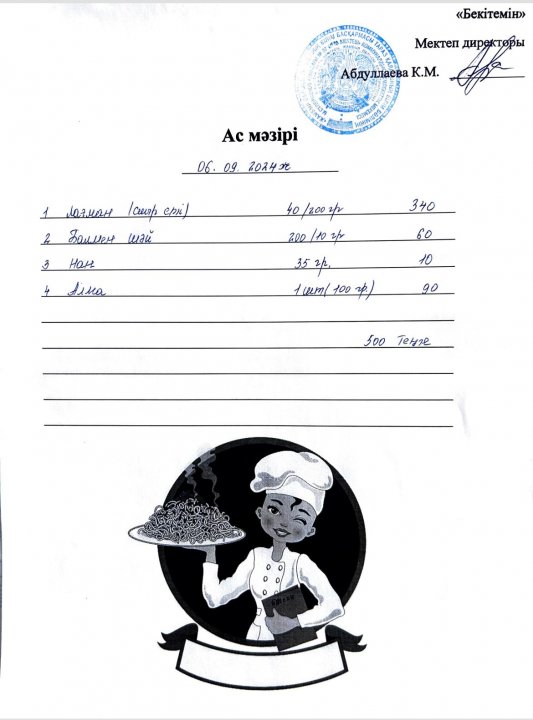 «Бекітемін»
Мектеп директоры
Абдуллаева К.М.
Ас мәзірі
06. 09. 2024ж
1 Лагман (сиыр еті) 40/200гр 340
2 Балмен шәй 200/10 гр 60
3 Нан 35 гр. 10
4 Алма 1 шт(100 гр.) 90
500 Теңге